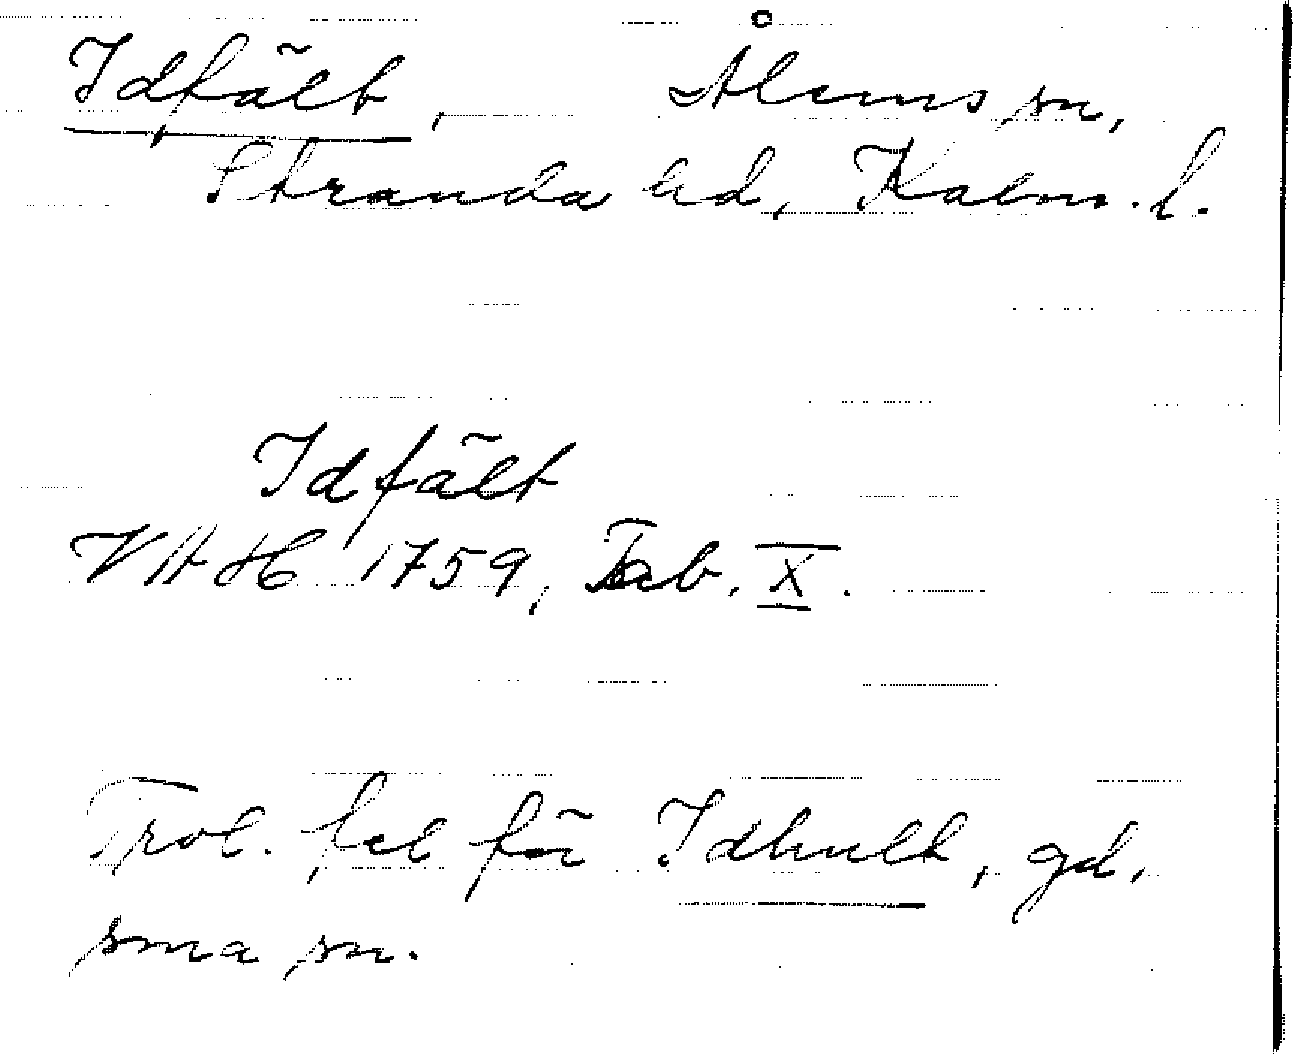 Idfält, Ålems sn,
Stranda hd, Kalm. l.
Idfält
VAH 1759, Tab. X.
Trol. fel för Idhult, gd,
sma sn.